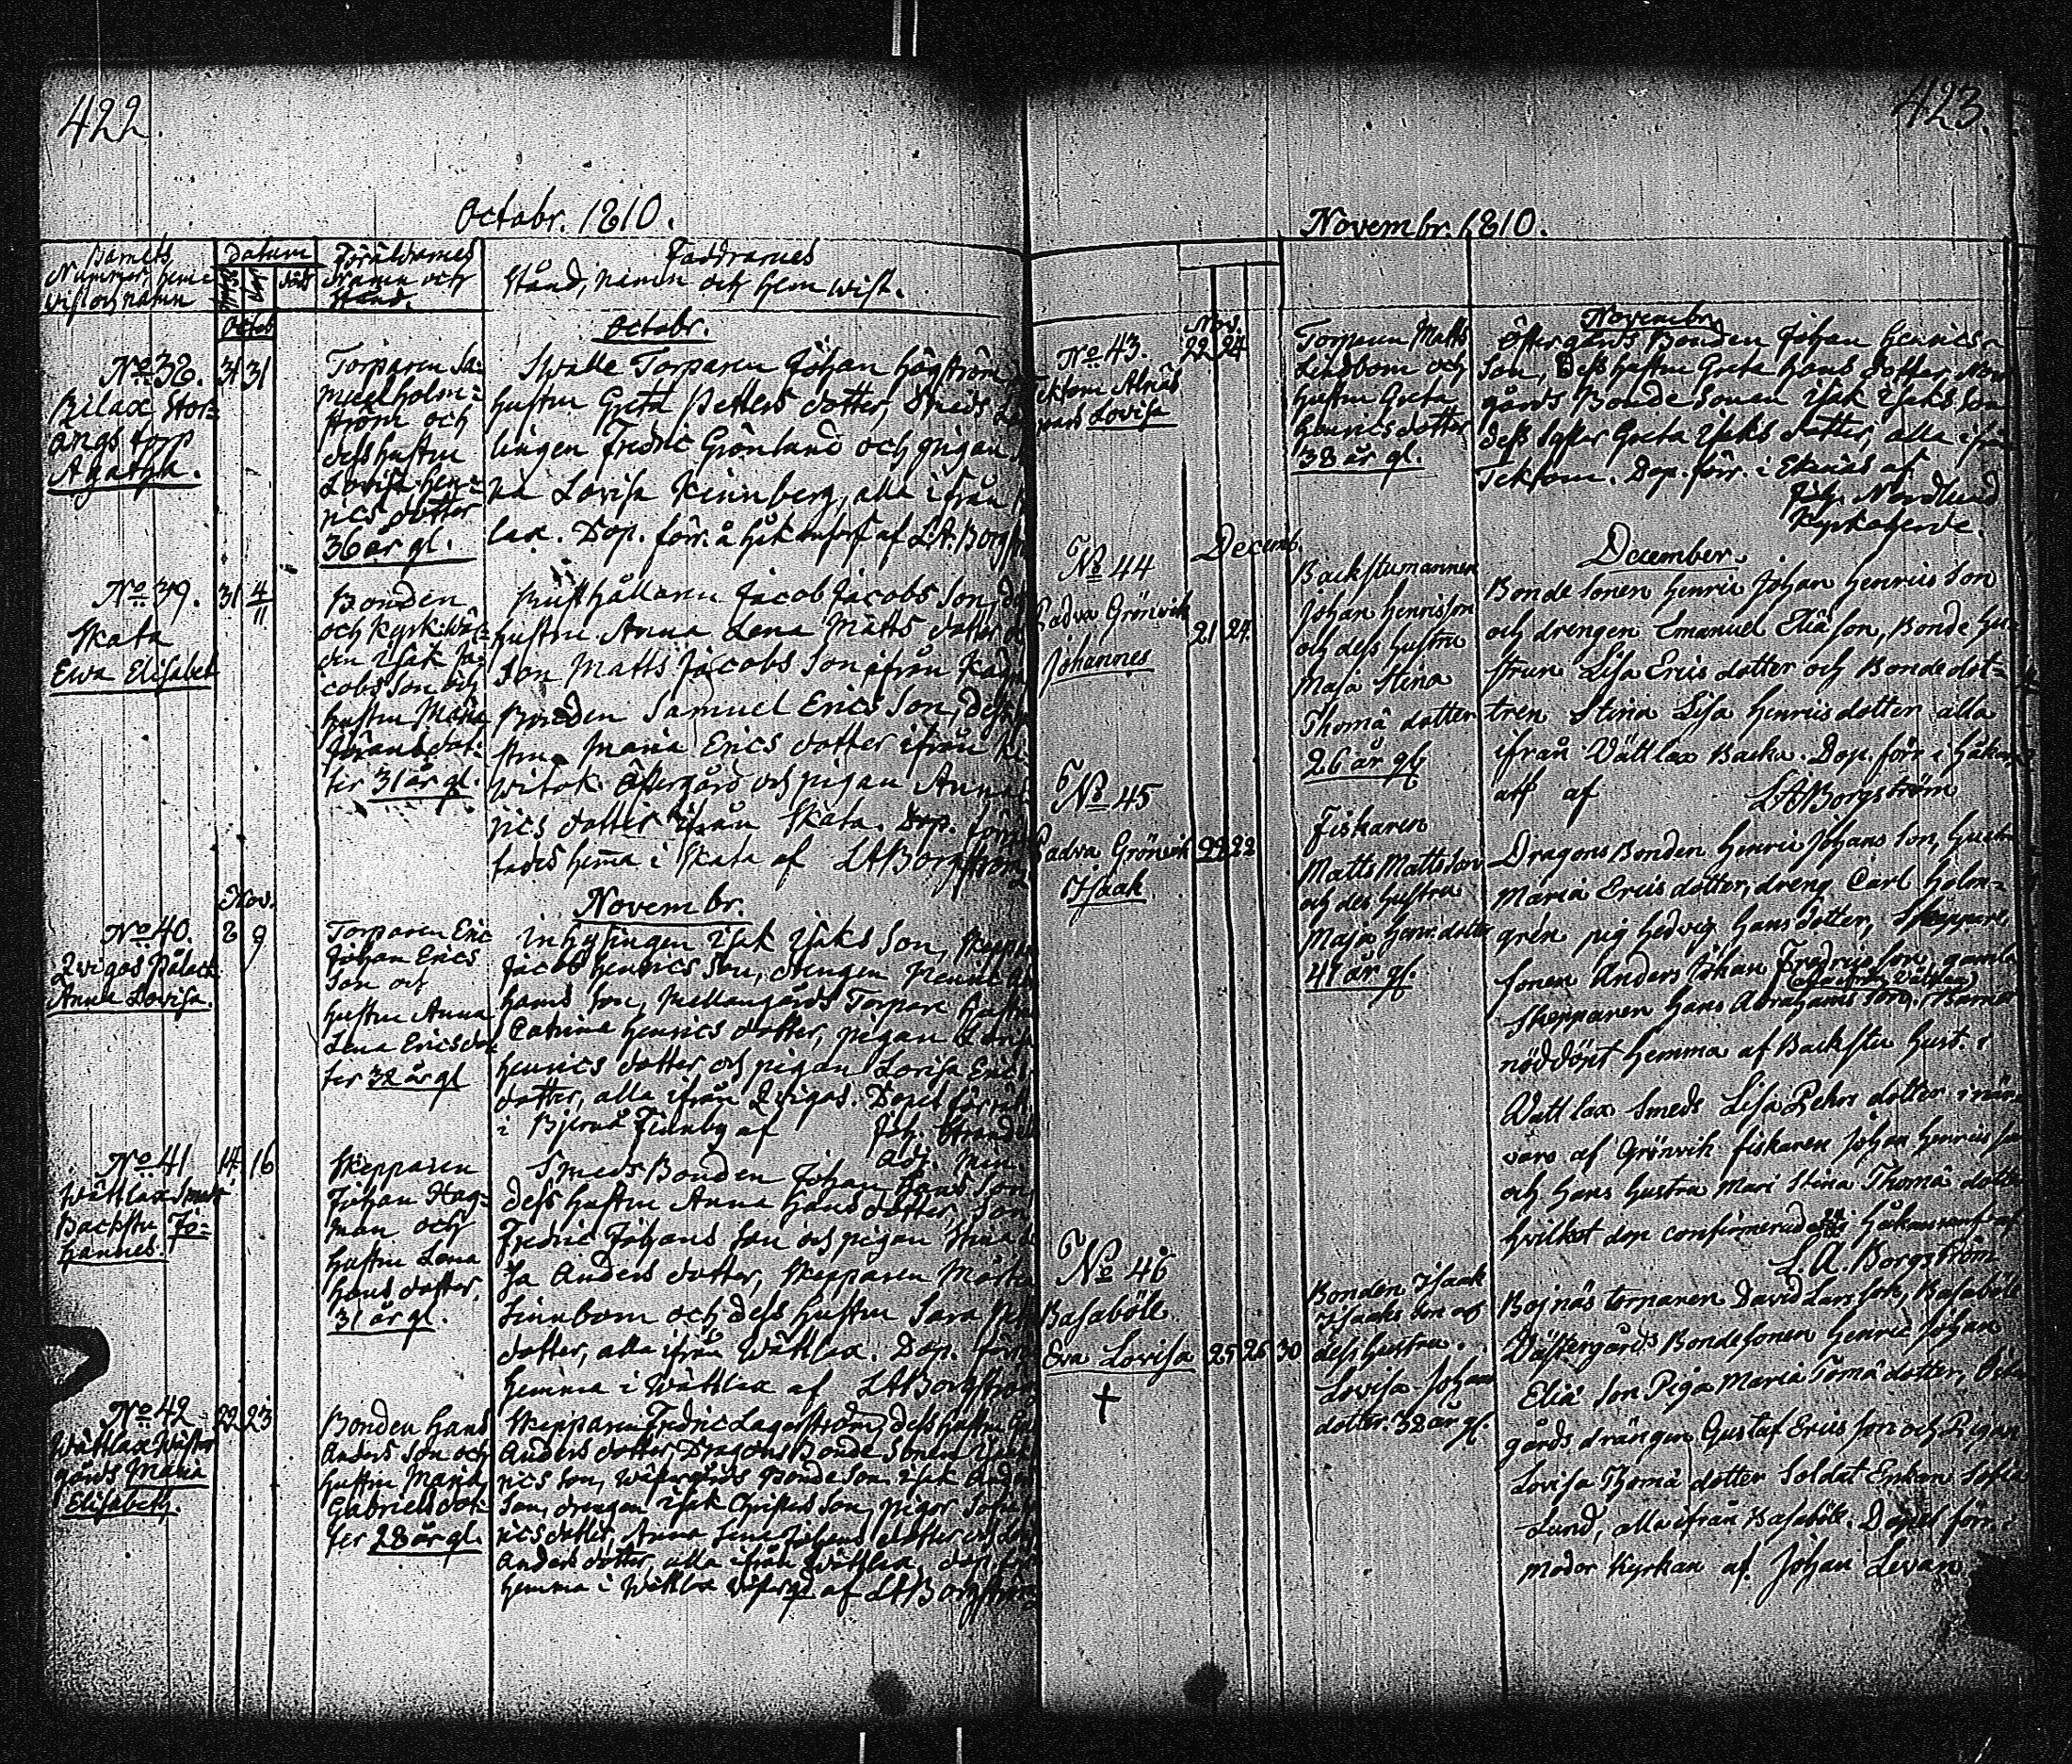 422.
Octobr. 1810.
Barnets
Nummer, hem-
vist och namn
Datum
Föräldrarnes
Namn och
Stånd.
Faddrarnes
Stånd, namn och hemwist.
Octob
Octobr.
No 38.
31 31
Bilax Stor-
ängs torp
Agatha.
Torparen Sa-
muel Holm-
ström och
dess hustru
Lovisa Hen-
rics dotter
36 år gl.
Torparen Johan Högström
hustru Greta Petters dotter, Smeds
lingen Fredric Grönlund och pigan
na Lovisa Kinnberg, alla ifrån
lax. Dop. förr. å Håkansarf af LA. Borgst
No 39.
31 4/11
Skata
Ewa Elisabet
Bonden
och Kyrkwär-
den Isak Ja-
cobs Son och
hustru Maria
Jörans dot-
ter 31 år gl.
Rusthållaren Jacob Jacobs Son,
hustru Anna Lena Matts dotter
Son Matts Jacobs Son ifrån
Bonden Samuel Erics Son, dess
stru Maria Erics dotter ifrån
witok Östergård och pigan Anna
rics dotter ifrån Skata. Dop. förrät
tades hema i Skata af LABorgström
Nov.
Novembr.
No 40.
8 9
Qvigos Pålack
Anna Lovisa.
Torparen Eric
Johan Erics
Son och
hustru Anna
Lena Ericsdot
ter 32 år gl
Inhysingen Isak Isaks Son, Skeppar
Jacob Henrics Son, drengen
hams Son, Mellangårds Torpare hustru
Catrina Henrics dotter, pigan
Henrics dotter och pigan Lovisa Eric
dotter, alla ifrån Qvigos. Dopet förrätt.
i Bjernå Finnby af Joh. Strand
Adj. Min.
No 41
14 16
Wättlax Smeds
Backstu Jo-
hannes.
Skepparen
Johan Hag-
man och
hustru Lena
Hans dotter,
31 år gl.
Smeds Bonden Johan Hans Son,
dess hustru Anna Hans dotter, Son
Fredric Johans Son och pigan Stina
sa Anders dotter, Skepparen Mårten
Linnbom och dess hustru Sara
dotter, alla ifrån Wättlax. Dop. förr
hemma i Wättlax af LABorgström
No 42
22 23
Wättlax Wäster
gårds Maria
Elisabeth.
Bonden Hans
Anders Son och
hustru Maria
Gabriels dot-
ter 28 år gl.
Skepparen Fredric Lagerström, dess hustru
Anders dotter Dragons Bonde Sonen Isak
rics Son, Westergårds Bonde Son Isak Anders
Son, drengen Isak Christers Son, pigor Sofia
rics dotter Anna Lena Johans dotter och
Anders dotter alla ifrån Wättlax, dop. förr
hemma i Wättlax Westergd af LABorgström
423.
Novembr. 1810.
Nov.
Novembr.
No 43.
22 24
Tektom Alnäs
Lovisa
Torparen Matts
Lindbom och
hustru Greta
Henrics dotter
38 år gl.
Östergårds Bonden Johan Henrics
Son, Dess hustru Greta Hans dotter, Norr
gårds Bonde Sonen Isak Isaks Son
dess syster Greta Isaks dotter, alla ifrån
Tektom. Dop. förr. i Ekenäs af
Joh. Nordlund
Kyrkoherde.
Decemb.
December
No 44
Padva Grönvik
21 24
Johannes
Backstumannen
Johan Henricsson
och dess hustru
Maja Stina
Thomä dotter
26 år gl
Bonde Sonen Henric Johan Henrics Son
och drengen Emanuel Eliä Son, Bonde hu-
strun Lisa Erics dotter och Bonde dot-
tren Stina Lisa Henrics dotter alla
ifrån Vättlax Backa. Dop. förr i Håkans
arf af LABorgström
No 45
Padva Grönvik 22 22
Isaak
Fiskaren
Matts Mattsson
och des hustru
Maja Henr. dotter
41 år gl.
Dragons Bonden Henric Johans Son, hustru
Maria Erics dotter, dreng Carl Holm-
grén pig Hedvig Hans dotter, Skeppare
sonen Anders Johan Fredrics son, gamla
alla ifrån Vättlax
Skepparen Hans Abrahams Son. Barnet
nöddöpt hemma af Backstu hust. i
Vättlax Smeds Lisa Pehrs dotter i när-
varo af Grönvik fiskaren Johan Henrics son
och Hans hustru Mari Stina Thomä dotter
hvilket dop confirmerades i Håkansarf af
L. A. Borgström
No 46
Basaböle
Eva Lovisa 25 26 30
†
Bonden Isaak
Isaaks Son och
dess hustru
Lovisa Johans
dotter 32 år gl.
Bojnäs torparen David Lars son, Basaböle
Västergårds Bondesonen Henric Johan
Eliä Son Piga Maria Tomä dotter, Öster
gårds drängen Gustaf Erics son och Pigan
Lovisa Thomä dotter Soldat Enkan Sofia
Lund, alla ifrån Basaböle. Dopet förr. i
moder Kyrkan af Johan Levan